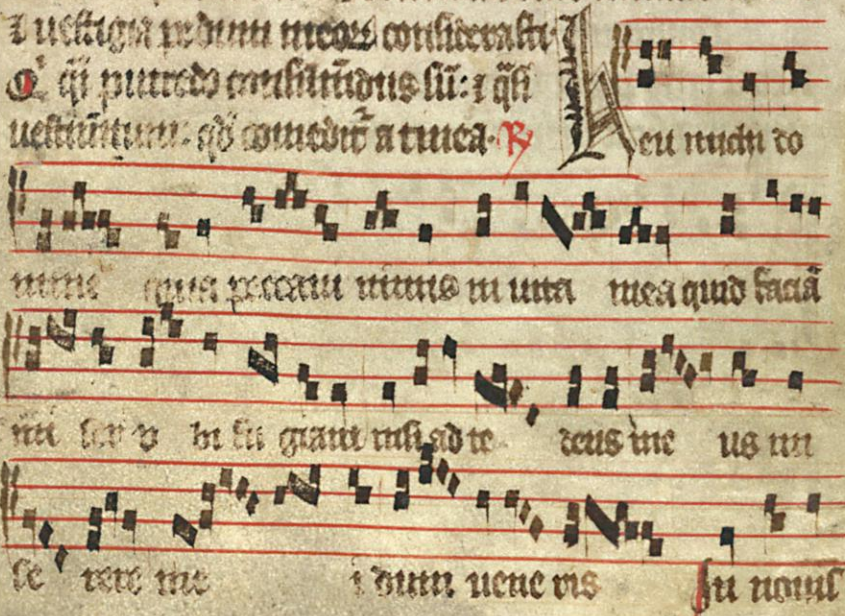 ⁊ uestigia pedum meoꝝ considerasti.
Qͥ qͣi putredo consumendus sū: ⁊ qͣsi
uestimentum. qd̓ comeditͬ a tinea. ℟
Heu michi do
mine quia peccaui nimis in uita mea quid faciā
mi ser u bi fu giam nisi ad te deus me us mi
se rere me i dum uene ris In nouis